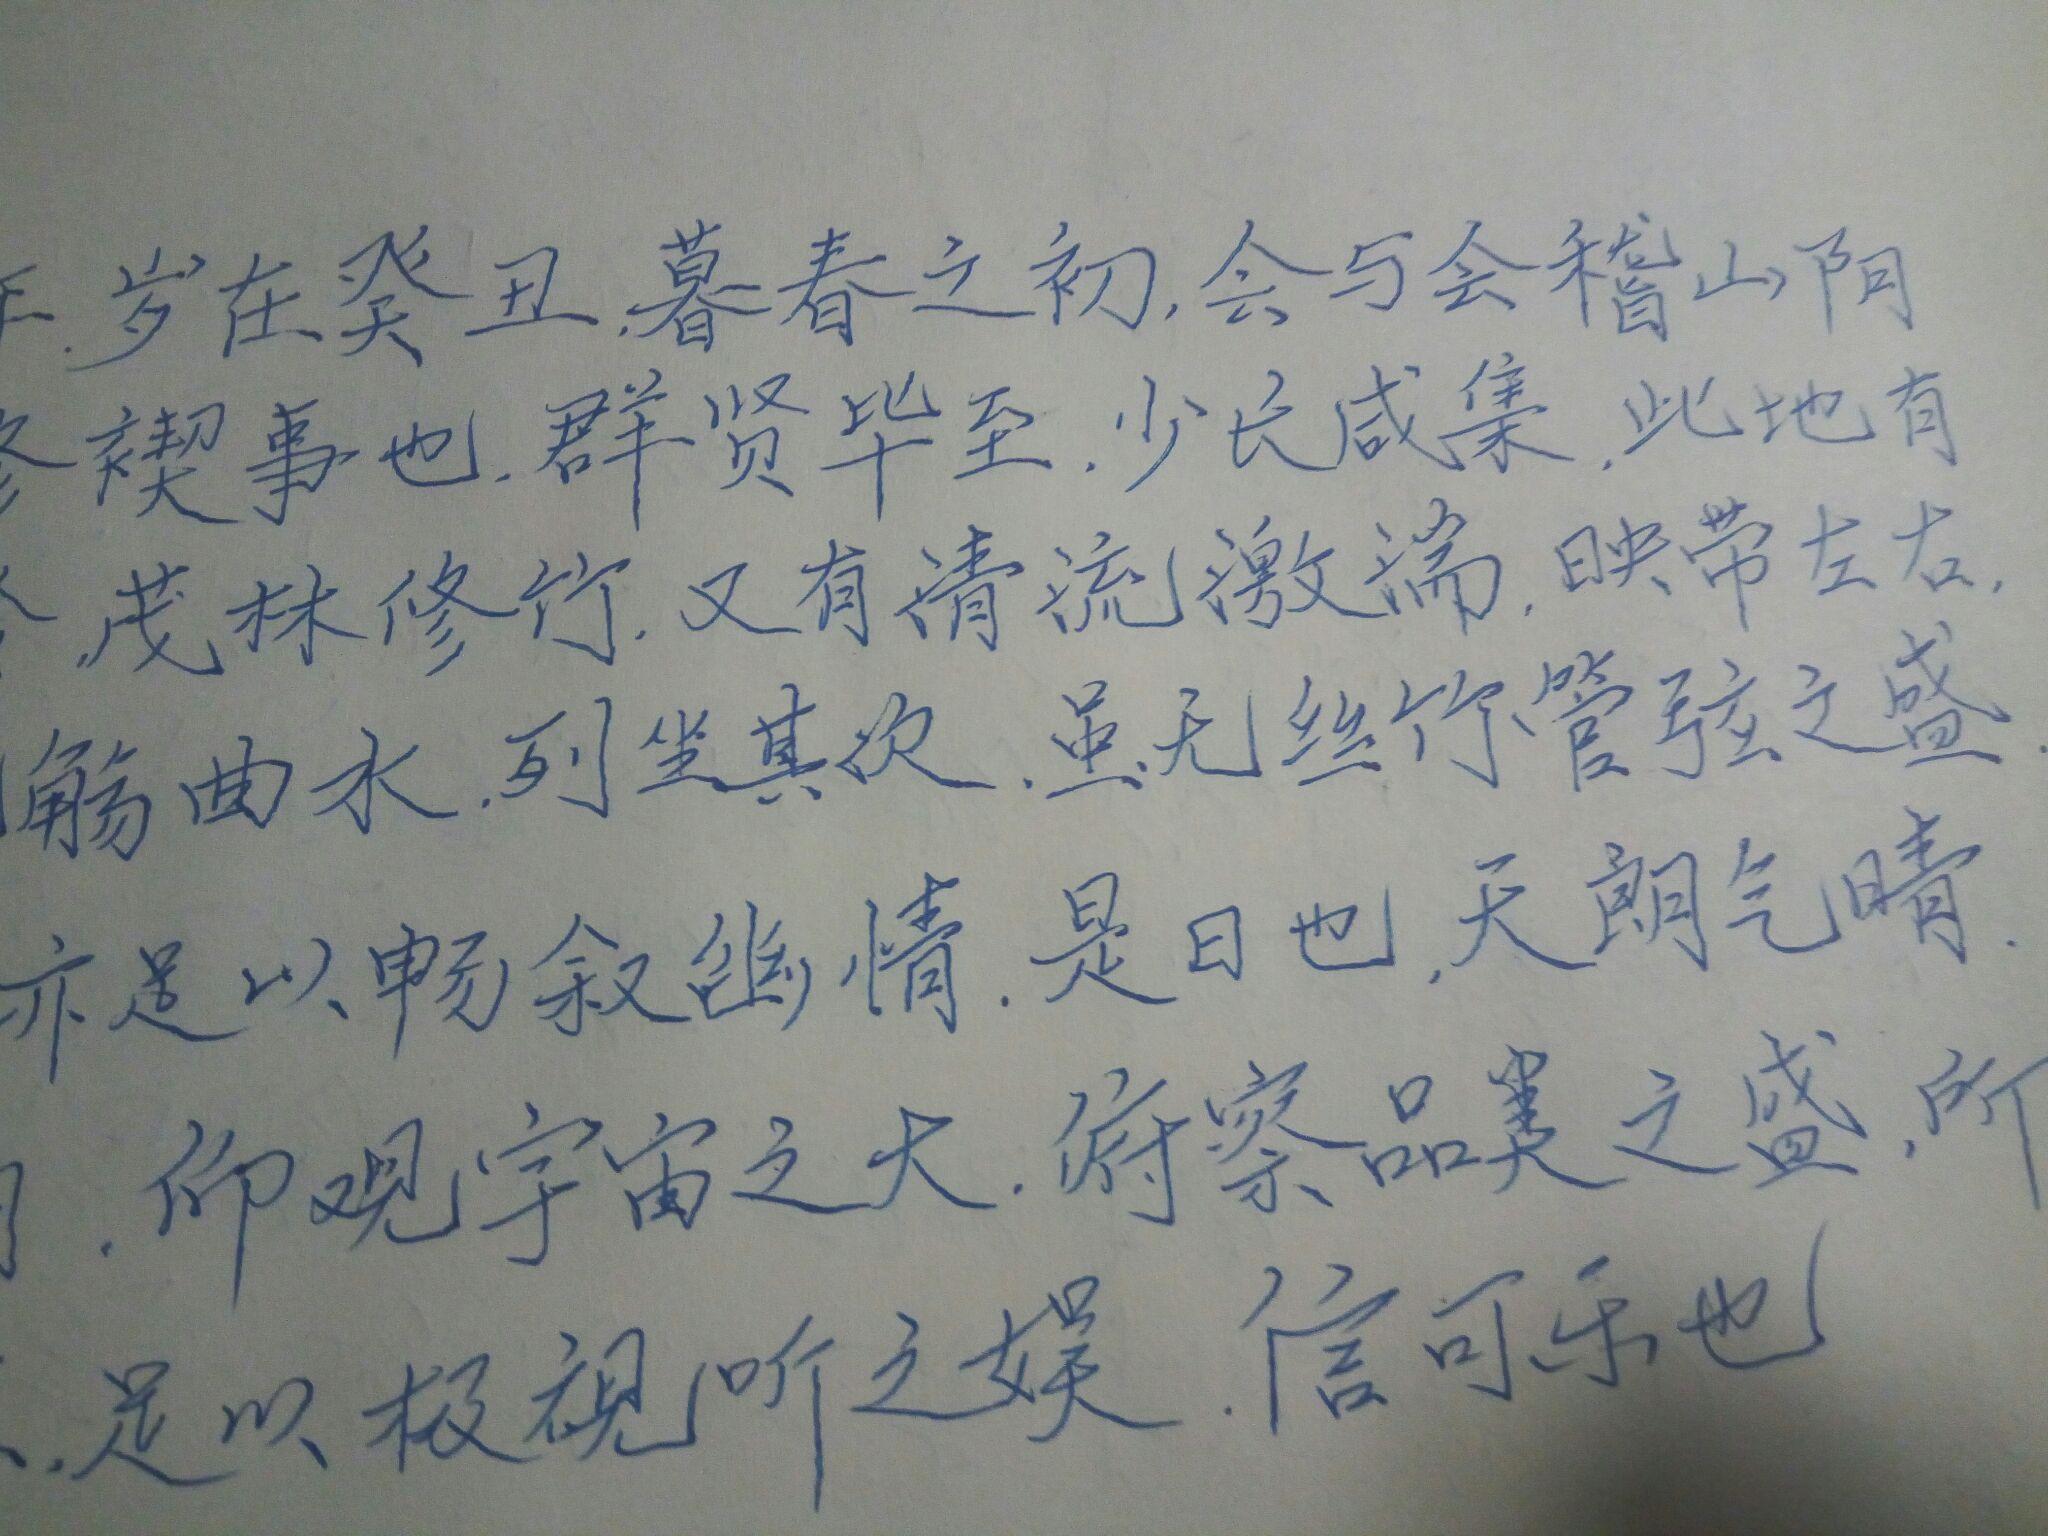 年.岁在癸丑.暮春之初,会与会稽山阴
修禊事也.群贤毕至.少长咸集.此地有
.茂林修竹.又有清流激湍.映带左右,
觞曲水.列坐其次.虽无丝竹管弦之盛.
亦足以畅叙幽情.是日也,天朗气晴.
.仰观宇宙之大.俯察品类之盛,所
.足以极视听之娱.信可乐也